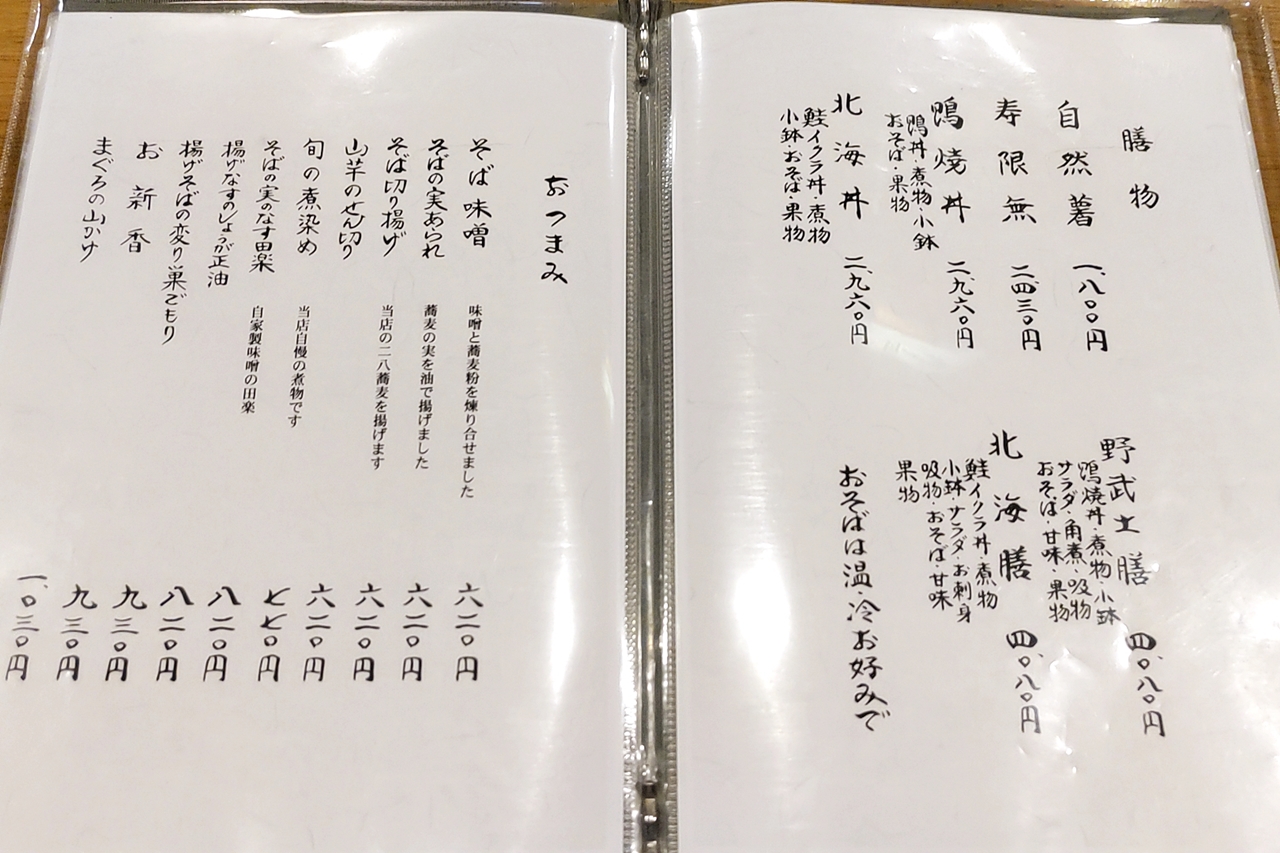 膳物
自然薯 一、八〇〇円
寿限無 二、四三〇円
鴨焼丼 二、九六〇円
鴨丼・煮物・小鉢
おそば・果物
北海丼 二、九六〇円
鮭イクラ丼・煮物
小鉢・おそば・果物
野武士膳 四、〇八〇円
鴨焼丼・煮物・小鉢
サラダ・角煮・吸物
おそば・甘味・果物
北海膳 四、〇八〇円
鮭イクラ丼・煮物
小鉢・サラダ・お刺身
吸物・おそば・甘味
果物
おそばは温・冷お好みで
おつまみ
そば味噌 味噌と蕎麦粉を煉り合せました 六二〇円
そばの実あられ 蕎麦の実を油で揚げました 六二〇円
そば切り揚げ 当店の二八蕎麦を揚げます 六二〇円
山芋のせん切り 六二〇円
旬の煮染め 当店自慢の煮物です 七七〇円
そばの実のなす田楽 自家製味噌の田楽 八二〇円
揚げなすのしょうが正油 八二〇円
揚げそばの変り巣ごもり 九三〇円
お新香 九三〇円
まぐろの山かけ 一、〇三〇円